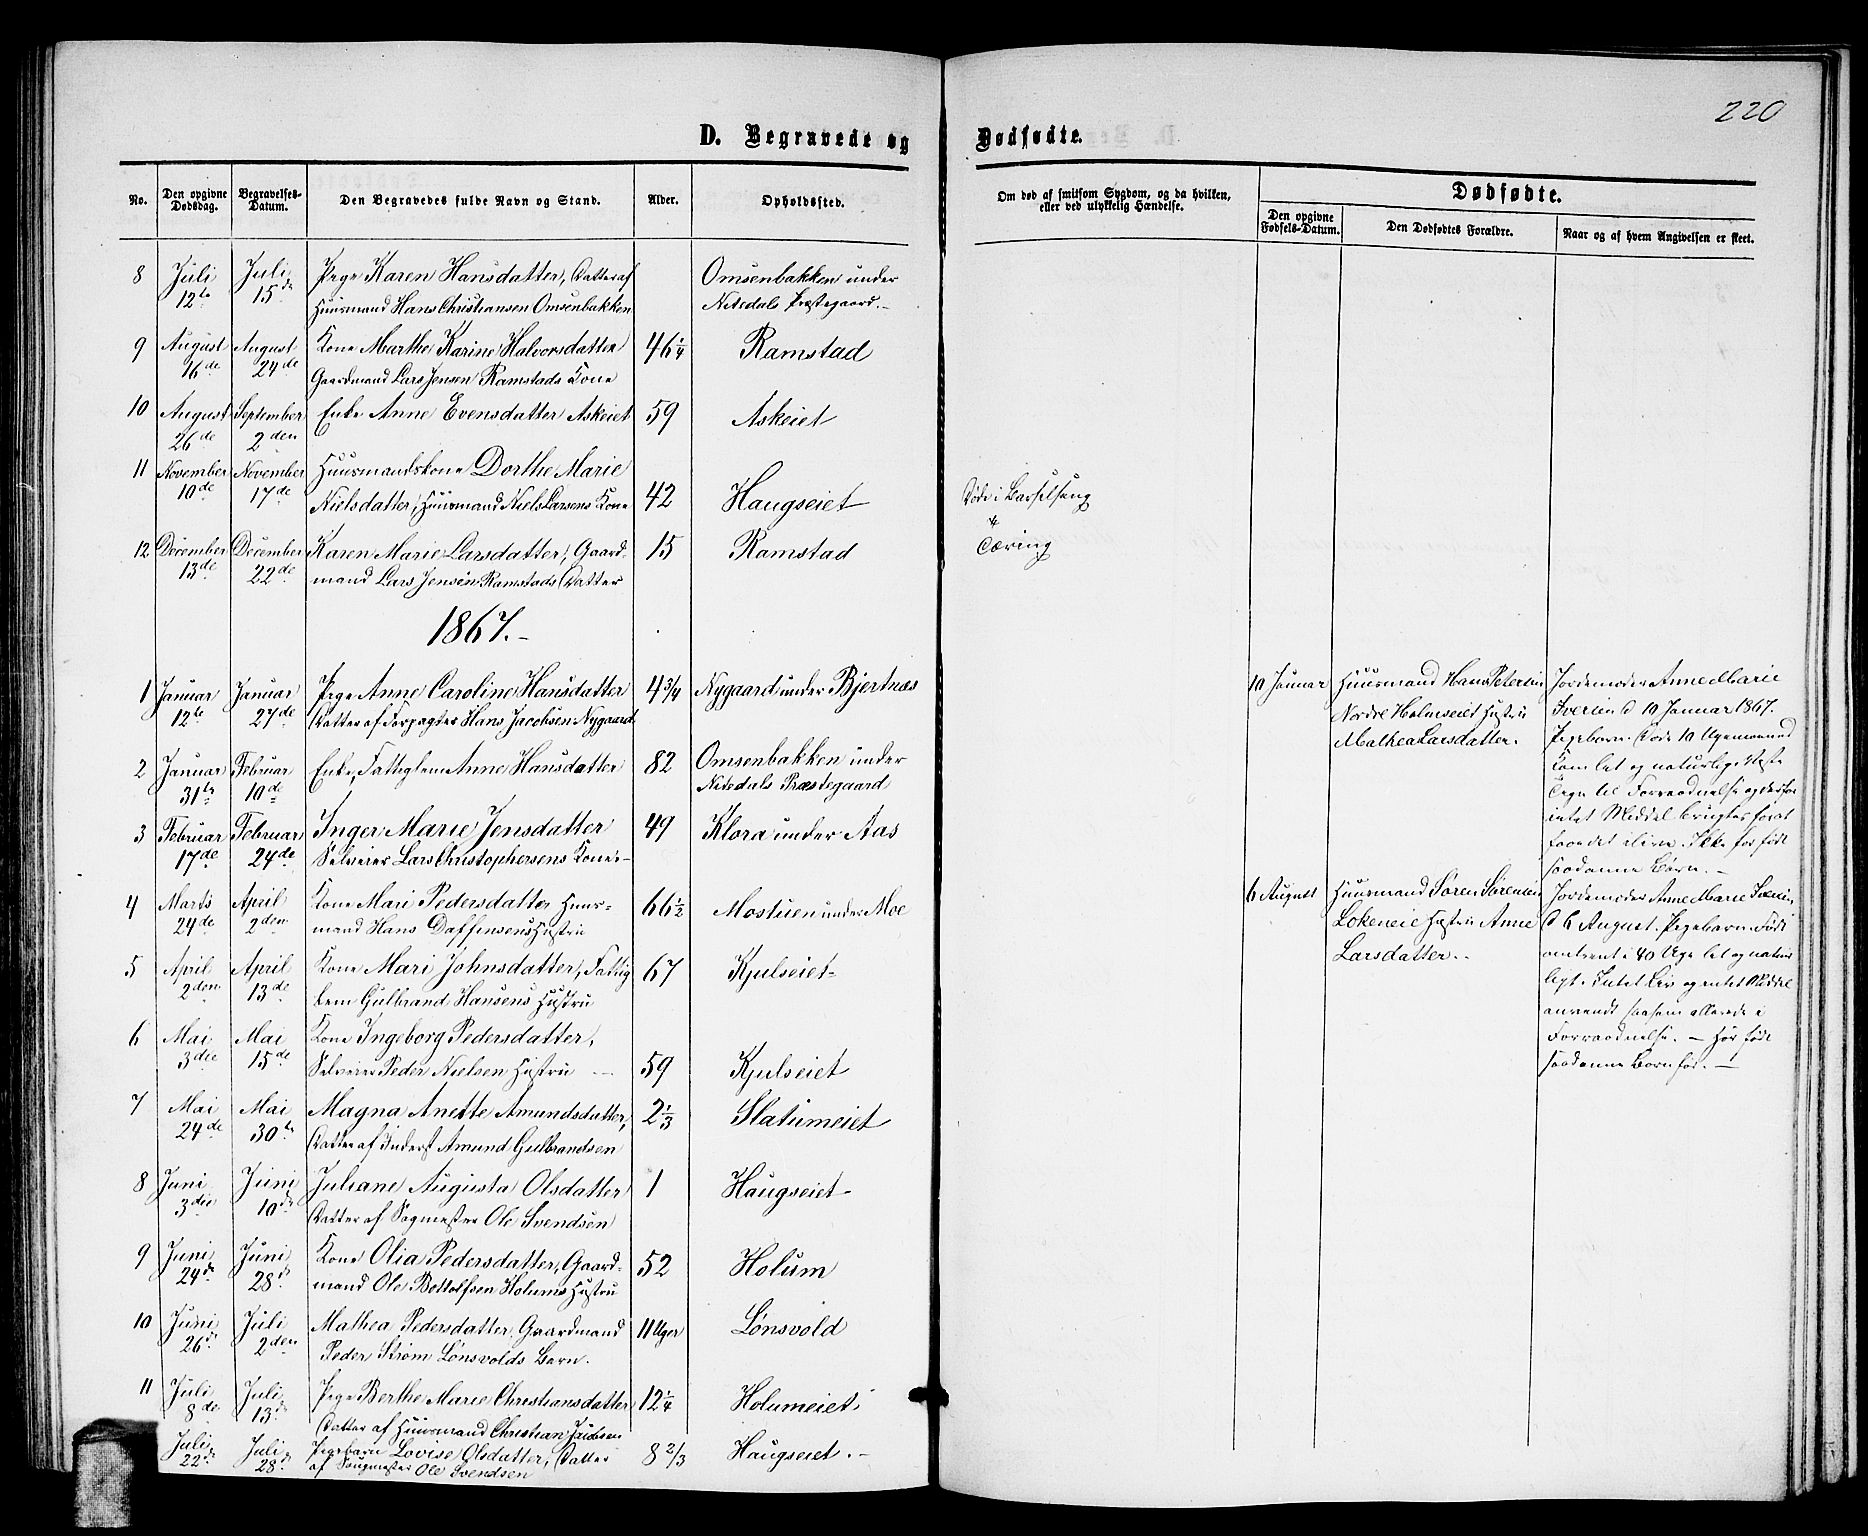 220
D. Begravede og Dødfødte.
No. Den opgivne Dødsdag. Begravelses-Datum. Den Begravedes fulde Navn og Stand. Alder. Opholdssted.
Om død af smitsom Sygdom, og da hvilken, eller ved ulykkelig Hændelse.
Dødfødte.
Den opgivne Fødsels-Datum. Den Dødfødtes Forældre. Naar og af hvem Angivelsen er skeet.
8 Juli Juli Pige Karen Hansdatter, Datter af Omsenbakken under
12te 15de Huusmand Hans Christiansen Omsenbakken Nitedals Præstegaard.-
9 August August Kone Marthe Karine Halvorsdatter 46 1/4 Ramstad
16de 24de Gaardmand Lars Jensen Ramstads Kone
10 August September Enke Anne Evensdatter Askeiet 59 Askeiet
26de 2den
11 November November Huusmandskone Dorthe Marie
10de 17de Nielsdatter, Huusmand Niels Larsens Kone 42 Haugseiet Døde i Barselseng
12 December December Karen Marie Larsdatter, Gaard- 15 Ramstad Tæring
13de 22de mand Lars Jensen Ramstads Datter
1867.-
1 Januar Januar Pige Anne Caroline Hansdatter 4 3/4 Nygaard under Bjertnæs
12te 27de Datter af Forpagter Hans Jacobsen Nygaard
2 Januar Februar Enke, Fattiglem Anne Hansdatter 82 Omsenbakken under
31te 10de Nitedals Præstegaard
3 Februar Februar Inger Marie Jensdatter 49 Klora under Aas
17de 24de Selveier Lars Christophersens Kone-
4 Marts April Kone Mari Pedersdatter Huus- 66 1/2 Mostuen under Moe
24de 2den mand Hans Daffinsens Hustru
5 April April Kone Mari Johnsdatter, Fattig 67 Kjulseiet-
2den 13de lem Gulbrand Hansens Hustru
6 Mai Mai Kone Ingeborg Pedersdatter,
3die 15de Selveier Peder Nielsen Hustru 59 Kjulseiet
7 Mai Mai Magna Anette Amundsdatter, 2 1/3 Slatumeiet
24de 30te Datter af Inderst Amund Gulbrandsen
8 Juni Juni Juliane Augusta Olsdatter 1 Haugseiet-
3die 10de Datter af Sagmester Ole Svendsen
9 Juni Juni Kone Olia Pedersdatter, Gaard- 52 Holum
24de 28de mand Ole Bottolfsen Holums Hustru
10 Juni Juli Mathea Pedersdatter, Gaardmand 11 Uger Lønsvold
26de 2den Peder Strøm Lønsvolds Barn.
11 Juli Juli Pige Berthe Marie Christiansdatter 12 1/4 Holumeiet
8de 13de Datter af Huusmand Christian
Juli Juli Pigebarn Lovise Olsdatter, Datter 8 2/3 Haugseiet.-
22de 28de af Saugmester Ole Svendsen
10 Januar Huusmand Hans Petersen Jordemoder Anne Marie
Nordre Holmseiet Hustru Iversen d 10 Januar 1867.
Mathea Larsdatter. Pigebarn. Døde 10 Uger
Kom let og naturlig.
Tegn til Forraadnelse og derfor
intet Middel brugtes først
faae det ilive. Ikke før født
saadanne Børn.-
6 August Huusmand Søren Sørensen Jordemoder Anne Marie
Løkeneie Hustru Anne d 6 August. Pigebarn. Født
Larsdatter.- omtrent i 40 Uge let og natur
ligt. Intet Liv og intet Middel
anvendt saasom allerede i
Forraadnelse. - Har født
saadanne Børn før. -